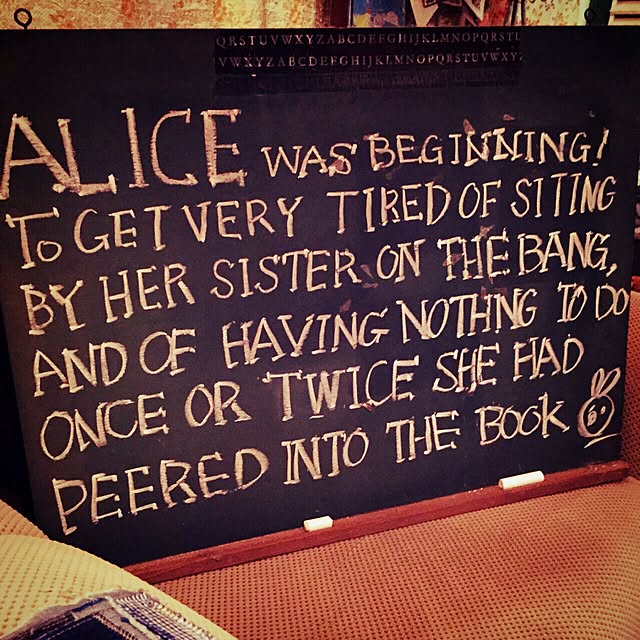 QRSTUVWXYZABCDEFGHIJKLMNOPQRSTU
VWXYZABCDEFGHIJKLMNOPQRSTUVWXYZ
ALICE WAS BEGINNING!
TO GET VERY TIRED OF SITING
BY HER SISTER ON THE BANG,
AND OF HAVING NOTHNG TO DO
ONCE OR TWICE SHE HAD
PEERED INTO THE BOOK